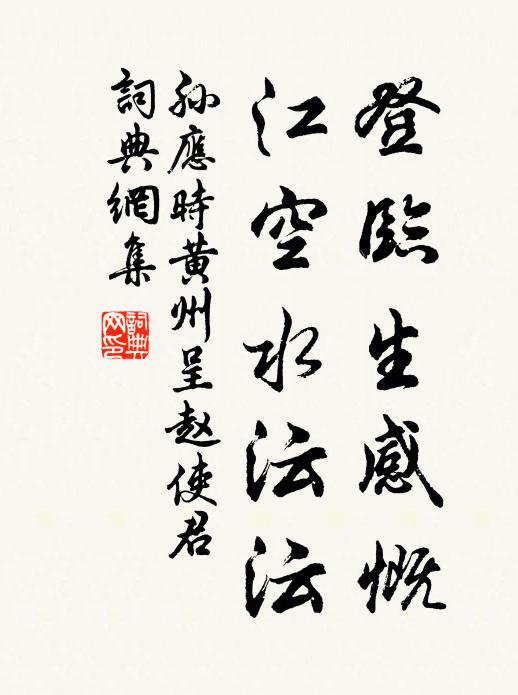 登臨生感慨
江空水沄沄
孙應時黄州呈赵使君
詞典網集
詞典網印